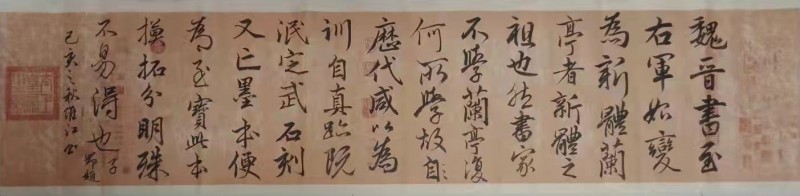 魏晉書至
右軍始變
為新體蘭
亭者新體之
祖也然書家
不學蘭亭復
何所學故自
歷代咸以為
訓自真跡既
泯定武石刻
又亡墨本便
為至寶此本
摸拓分明殊
不易淂也子昂題
己亥之秋江書